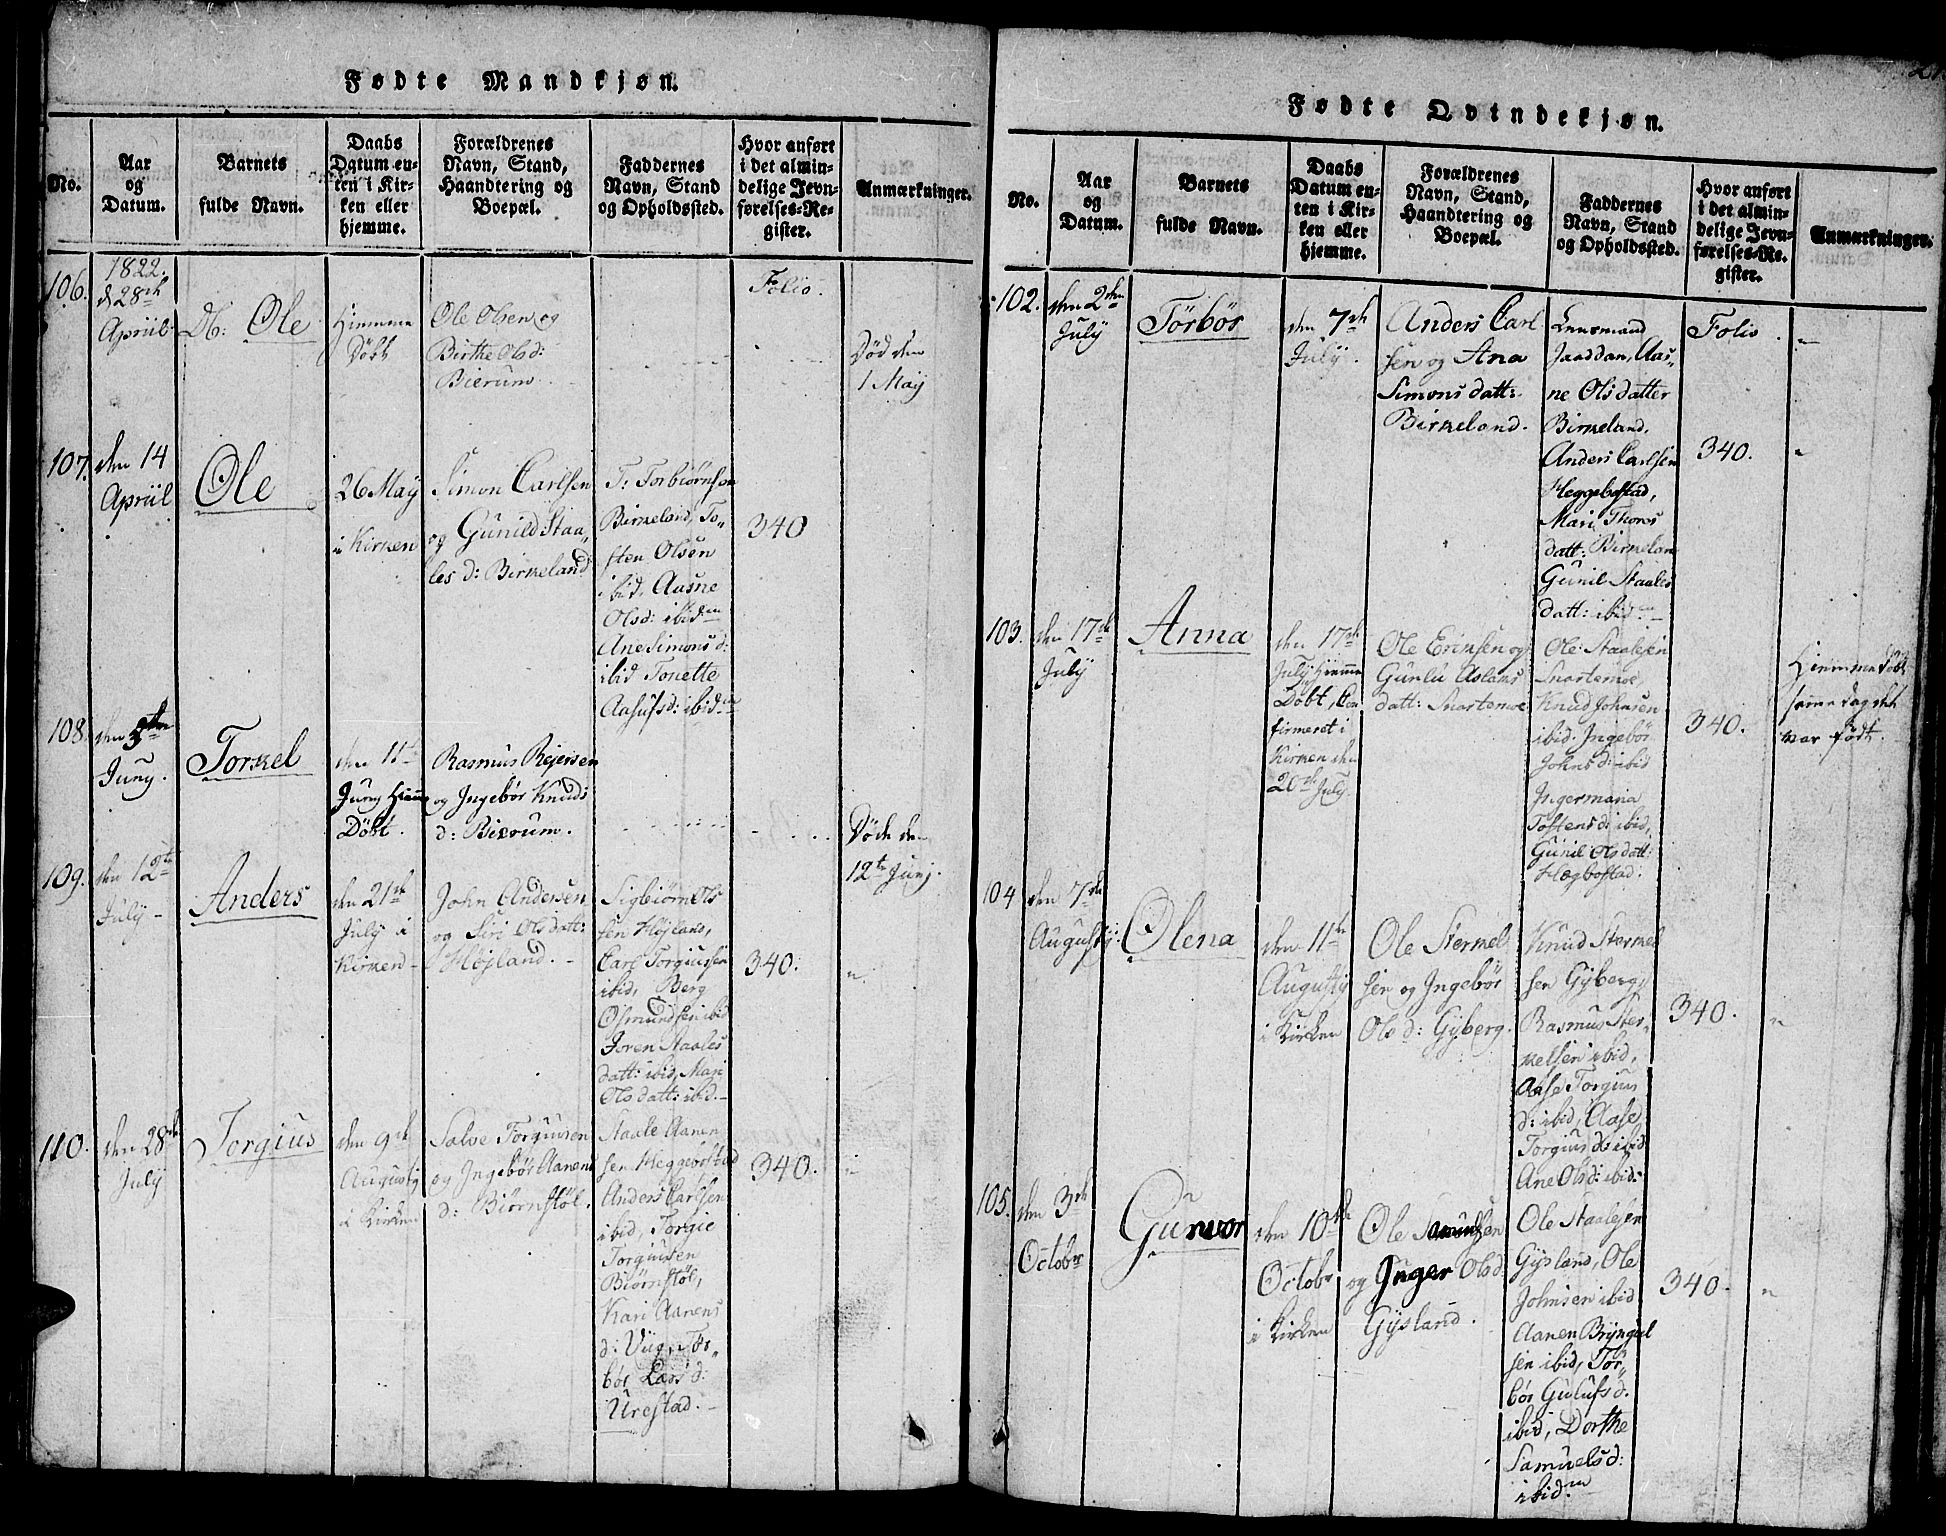 Fødte Mandkjøn.
No.
Aar
og
Datum.
Barnets
fulde Navn.
Daabs
Datum en-
ten i Kir-
ken eller
hjemme.
Forældrenes
Navn, Stand,
Haandtering og
Boepæl.
Faddernes
Navn, Stand
og Opholdssted.
Hvor anført
i det almin-
delige Jevn-
førelses-Re-
gister.
Anmærkninger.
106.
1822.
d. 28de
Apriil
Db: Ole
Hiemme
Döbt
Ole Olsen og
Birthe Olsd:
Bierum.
Folio.
Död den
1 Maÿ
107.
den 14
Apriil
Ole
26 Maÿ
i Kirken
Simon Carlsen
og Gunild Staa„
les d: Birkeland
T: Torbiörnsen
Birkeland, To„
sten Olsen
ibid, Aasne
Olsd: ibidm
Ane Simons d:
ibid Tonette
Aasufsd: ibidm
340
108.
den 5ten
Juny.
Torkel
den 11te
Juny Hiem̄e
Döbt.
Rasmus Rejersen
og Jngebör Knuds
d: Bierum.
Döde den
12te Junj.
109.
den 12te
Julÿ -
Anders
den 21de
July i
Kirken -
John Andersen
og Siri Olsdatt:
Höjland. -
Sigbiörn Ols
sen Höjland,
Carl Torgiussen
ibid, Berg
Osmundsen ibid
Joren Staales
datt: ibid, Mari
Olsdatt: ibid. -
340.
"
110.
den 28de
July
Torgius
den 9de
Augusty
i Kirken
Salve Torgiusen
og Ingebör Aanens
d: Biörnstöl.
Staale Aanen
sen Heggebostad
Anders Carlsen
ibid, Torgie
Torgiusen
Biörnstöl,
Kari Aanens
d: Viig, Tor„
bör Lars d:
Urestad. -
340.
"
Fødte Qvindekjøn.
No.
Aar
og
Datum.
Barnets
fulde Navn.
Daabs
Datum en-
ten i Kir-
ken eller
hjemme.
Forældrenes
Navn, Stand,
Haandtering og
Boepæl.
Faddernes
Navn, Stand
og Opholdssted.
Hvor anført
i det almin-
delige Jevn-
førelses-Re-
gister.
Anmærkninger.
102.
den 2den
July
Törbör
den 7de
July.
Anders Carl
sen og Ana
Simonsdatt:
Birkeland.
Lensmand
Jaaddan, Aas„
ne Olsdatter
Birkeland,
Anders Carlsen
Heggebostad,
Mari Thores
datt: Birkelan
Gunil Staales
datt: ibidm -
Folio.
340.
"
103.
den 17de
July
Anna
den 17de
July Hiem̄e
Döbt, Con
firmeret i
Kirken den
20de July.
Ole Erinsen og
Gunlu Aslaks
datt: Snartemoe
Ole Staalesen
Snartemoe,
Knud Johnsen
ibid. Ingebör
Johns d: ibid
Ingermaria
Tostens d: ibid,
Gunil Olsdatt:
Hegbostad.
340.
Hiemme Döbt
samme dag det
var födt.
104
den 7de
Augusty:
Olena
den 11te
Augusty
i Kirken
Ole Sterkel
sen og Ingebör
Olsd: Gÿberg.
Knud Sterkel
sen Gÿberg,
Rasmus Ster„
kelsen ibid,
Aase Torgius
d: ibid, Aase
Torgius ds ibid
Ane Olsd: ibid:
340.
"
105.
den 3de
Octobr
Gunvor
den 10de
Octobr
i Kirken
Ole Samuelsen
og Inger Olsd:
Gÿsland.
Ole Staalesen
Gysland, Ole
Johnsen ibid
Aanen Brÿngel
sen ibid, Tor„
bör Gulufsd.
ibid, Dorthe
Samuelsd:
ibidm
340.
"